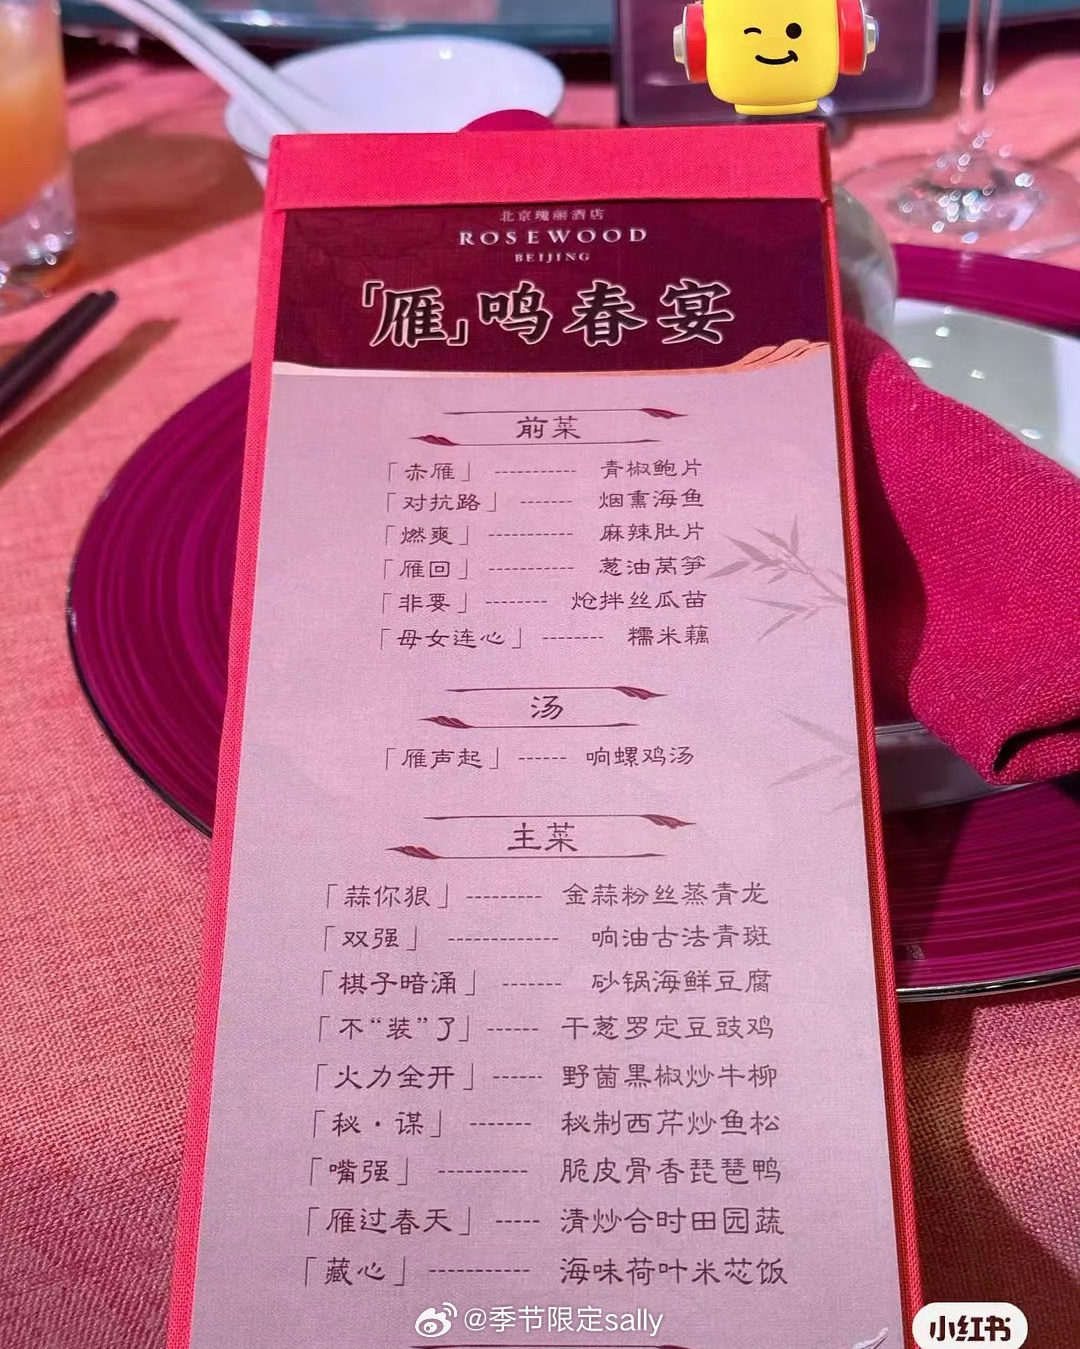 北京瑰丽酒店
ROSEWOOD
BEIJING
「雁」鸣春宴
前菜
「赤雁」----------- 青椒鲍片
「对抗路」------- 烟熏海鱼
「燃爽」----------- 麻辣肚片
「雁回」----------- 葱油莴笋
「非要」-------- 炝拌丝瓜苗
「母女连心」-------- 糯米藕
汤
「雁声起」------ 响螺鸡汤
主菜
「蒜你狠」--------- 金蒜粉丝蒸青龙
「双强」------------- 响油古法青斑
「棋子暗涌」------- 砂锅海鲜豆腐
「不“装”了」------ 干葱罗定豆豉鸡
「火力全开」------ 野菌黑椒炒牛柳
「秘·谋」-------- 秘制西芹炒鱼松
「嘴强」----------- 脆皮骨香琵琶鸭
「雁过春天」----- 清炒合时田园蔬
「藏心」------------ 海味荷叶米芯饭
@季节限定sally
小红书